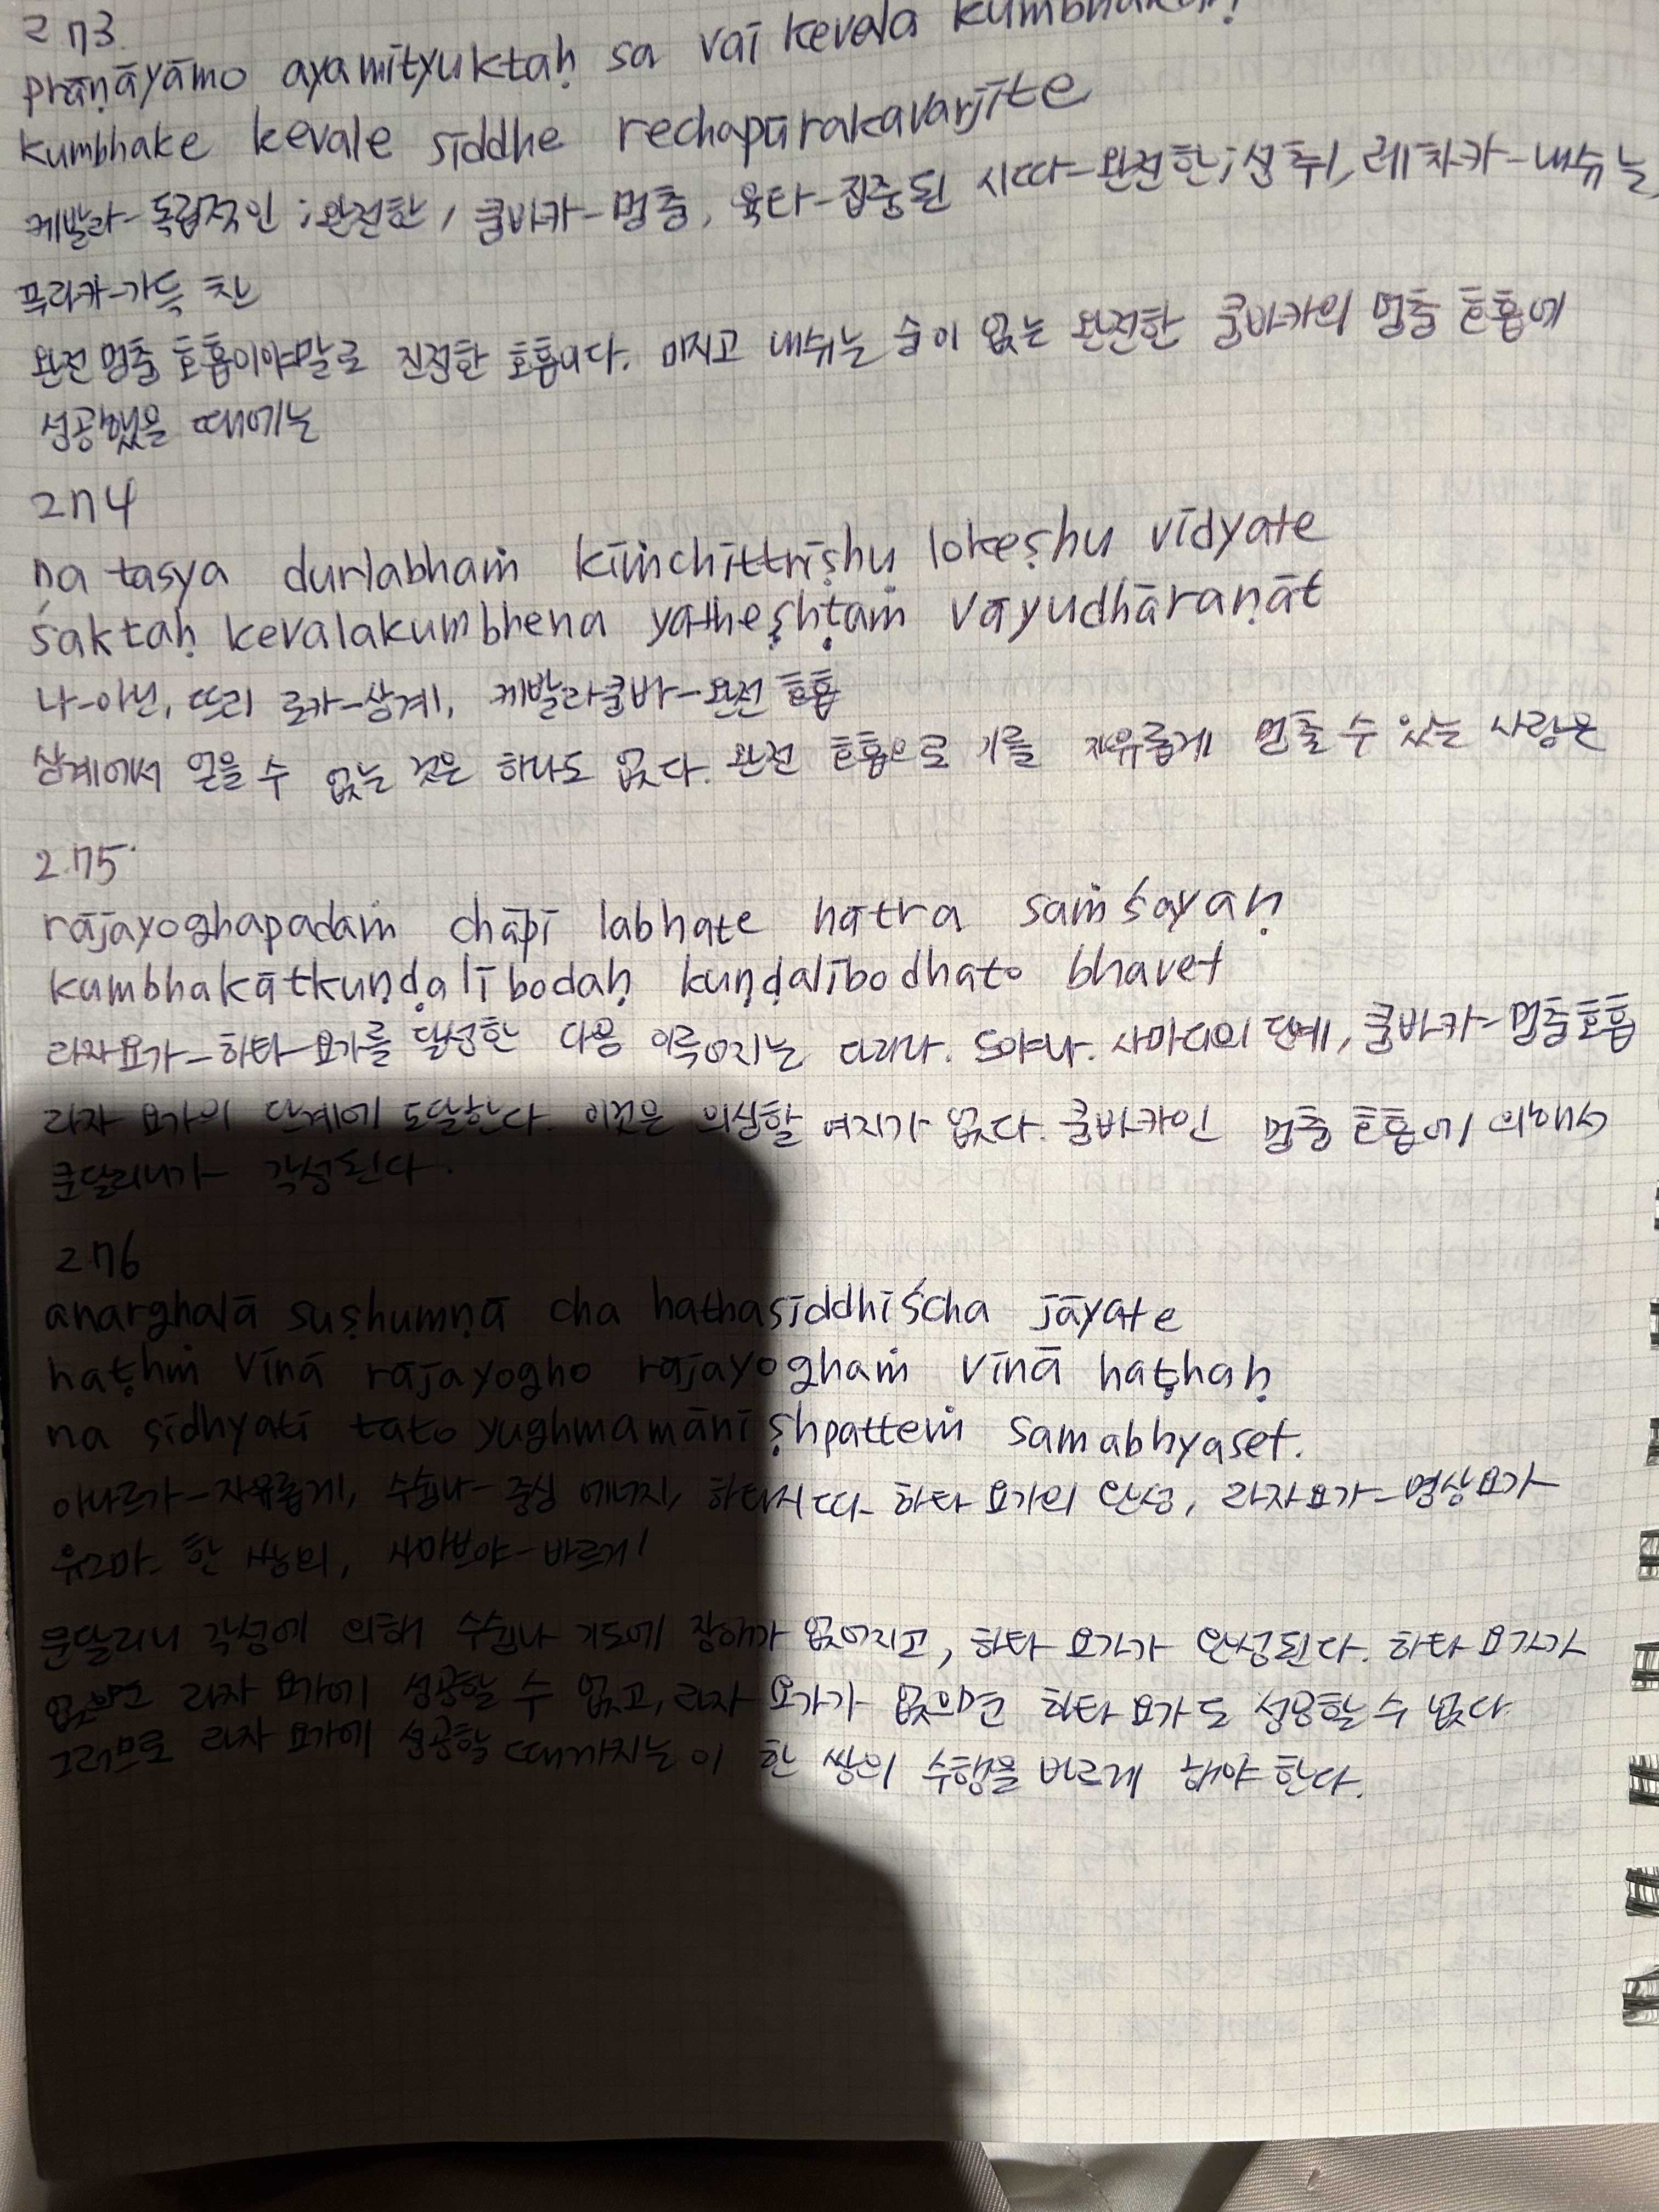 2 73.
prāṇāyāmo ayamityuktaḥ sa vai kevala
kumbhake kevale siddhe rechapūrakavarjite
케발라-독립적인;완전한, 쿰바카-멈춤, 육타-집중된 시따-완전한;성취, 레차카-내쉬는,
푸라카-가득 찬
완전 멈춤 호흡이야말로 진정한 호흡이다. 마시고 내쉬는 숨이 없는 완전한 쿰바카의 멈춤 호흡에
성공했을 때에는
274
na tasya durlabhaṁ kiṁchittriṣhu lokeṣhu vidyate
śaktaḥ kevalakumbhena yatheṣhṭaṁ vāyudhāraṇāt
나-아닌, 뜨리 로카-삼계, 케발라쿰바-완전 호흡
삼계에서 얻을 수 없는 것은 하나도 없다. 완전 호흡으로 기를 자유롭게 멈출 수 있는 사람은
2.75
rājayoghapadaṁ chāpi labhate nātra saṁśayaḥ
kumbhakātkuṇḍalībodaḥ kuṇḍalībodhato bhavet
라자요가-하타-요가를 달성한 다음 이루어지는 다라나. 드야나. 사마디의 단계, 쿰바카-멈춤호흡
라자 요가의 단계에 도달한다. 이것은 의심할 여지가 없다. 쿰바카인 멈춤 호흡에 의해서
쿤달리니가 각성된다.
2.76
anarghalā suṣhumṇā cha haṭhasiddhiścha jāyate
haṭhṁ vinā rājayogho rājayoghaṁ vinā haṭhaḥ
na sidhyati tato yughmamāniṣhpatteṁ samabhyaset.
아나르가-자유롭게, 수슘나-중심 에너지, 하타시따-하타 요가의 완성, 라자요가-명상요가
유그마-한 쌍의, 사마브야-바르게
쿤달리니 각성에 의해 수슘나 기도에 장애가 없어지고, 하타 요가가 완성된다. 하타 요가가
없으면 라자 요가에 성공할 수 없고, 라자 요가가 없으면 하타 요가도 성공할 수 없다
그러므로 라자 요가에 성공할 때까지는 이 한 쌍의 수행을 바르게 해야 한다.